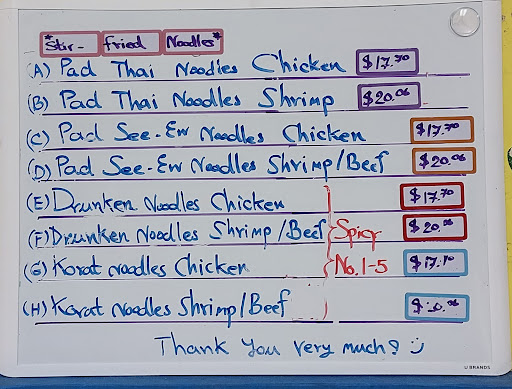 *Stir- fried Noodles*
(A) Pad Thai Noodles Chicken $17.70
(B) Pad Thai Noodles Shrimp $20.06
(C) Pad See-Ew Noodles Chicken $17.70
(D) Pad See-Ew Noodles Shrimp/Beef $20.06
(E) Drunken Noodles Chicken $17.70
(F) Drunken Noodles Shrimp/Beef Spicy $20.06
(G) Korat noodles Chicken No.1-5
(H) Korat Noodles Shrimp/Beef
Thank You very much
U BRANDS